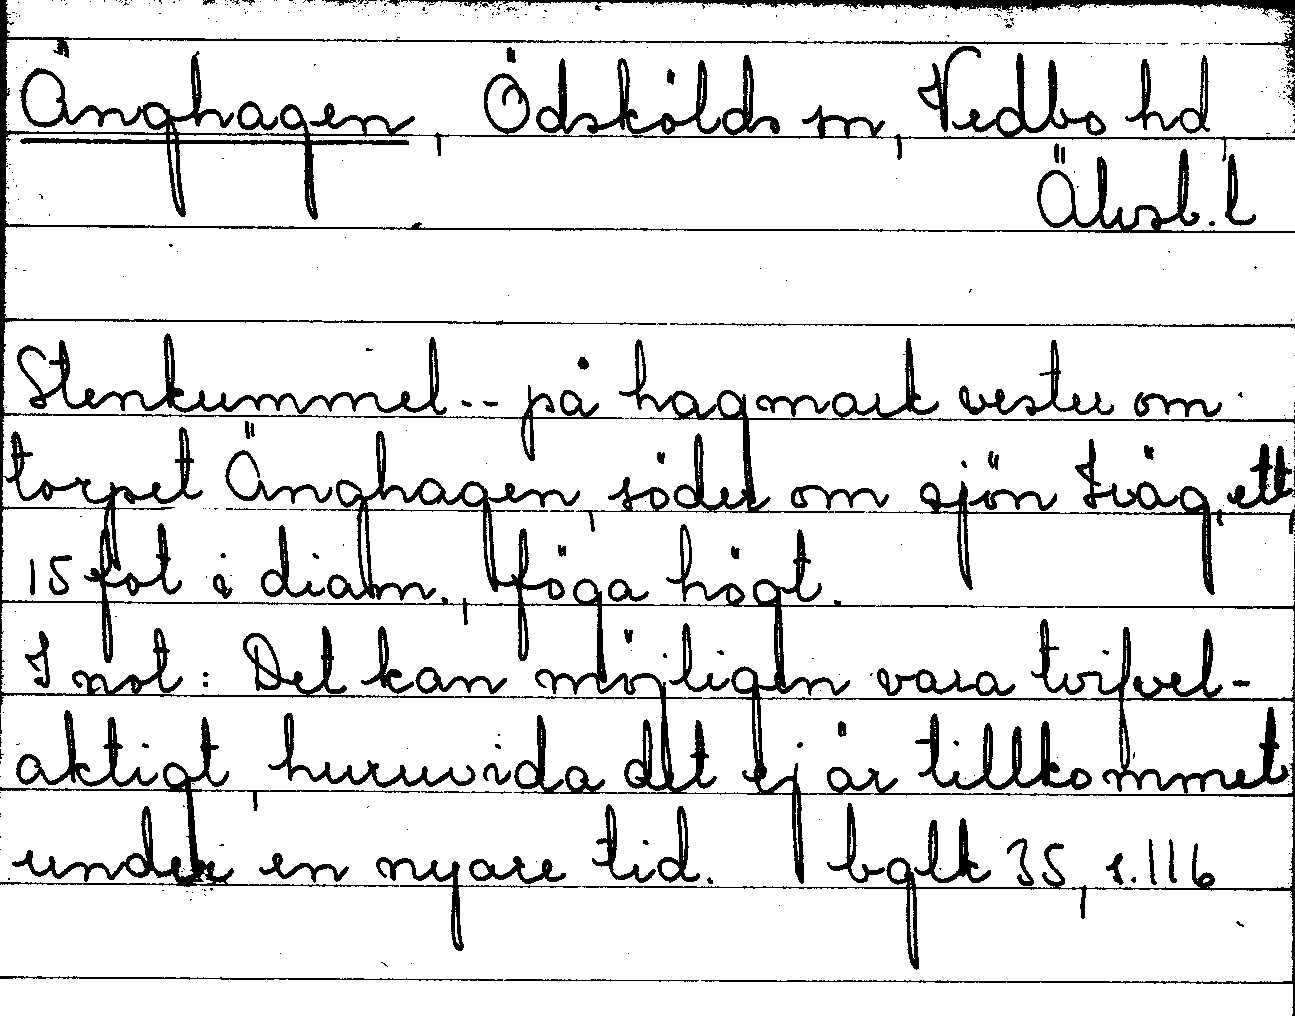 Änghagen, Ödskölds sn, Vedbo hd,
Älvsb. l
Stenkummel -- på hagmark vester om
torpet Änghagen, söder om sjön Iväg, ett,
15 fot i diam., föga högt.
I not: Det kan möjligen vara tvifvel-
aktigt, huruvida det ej är tillkommet
under en nyare tid. bglk 35, s. 116